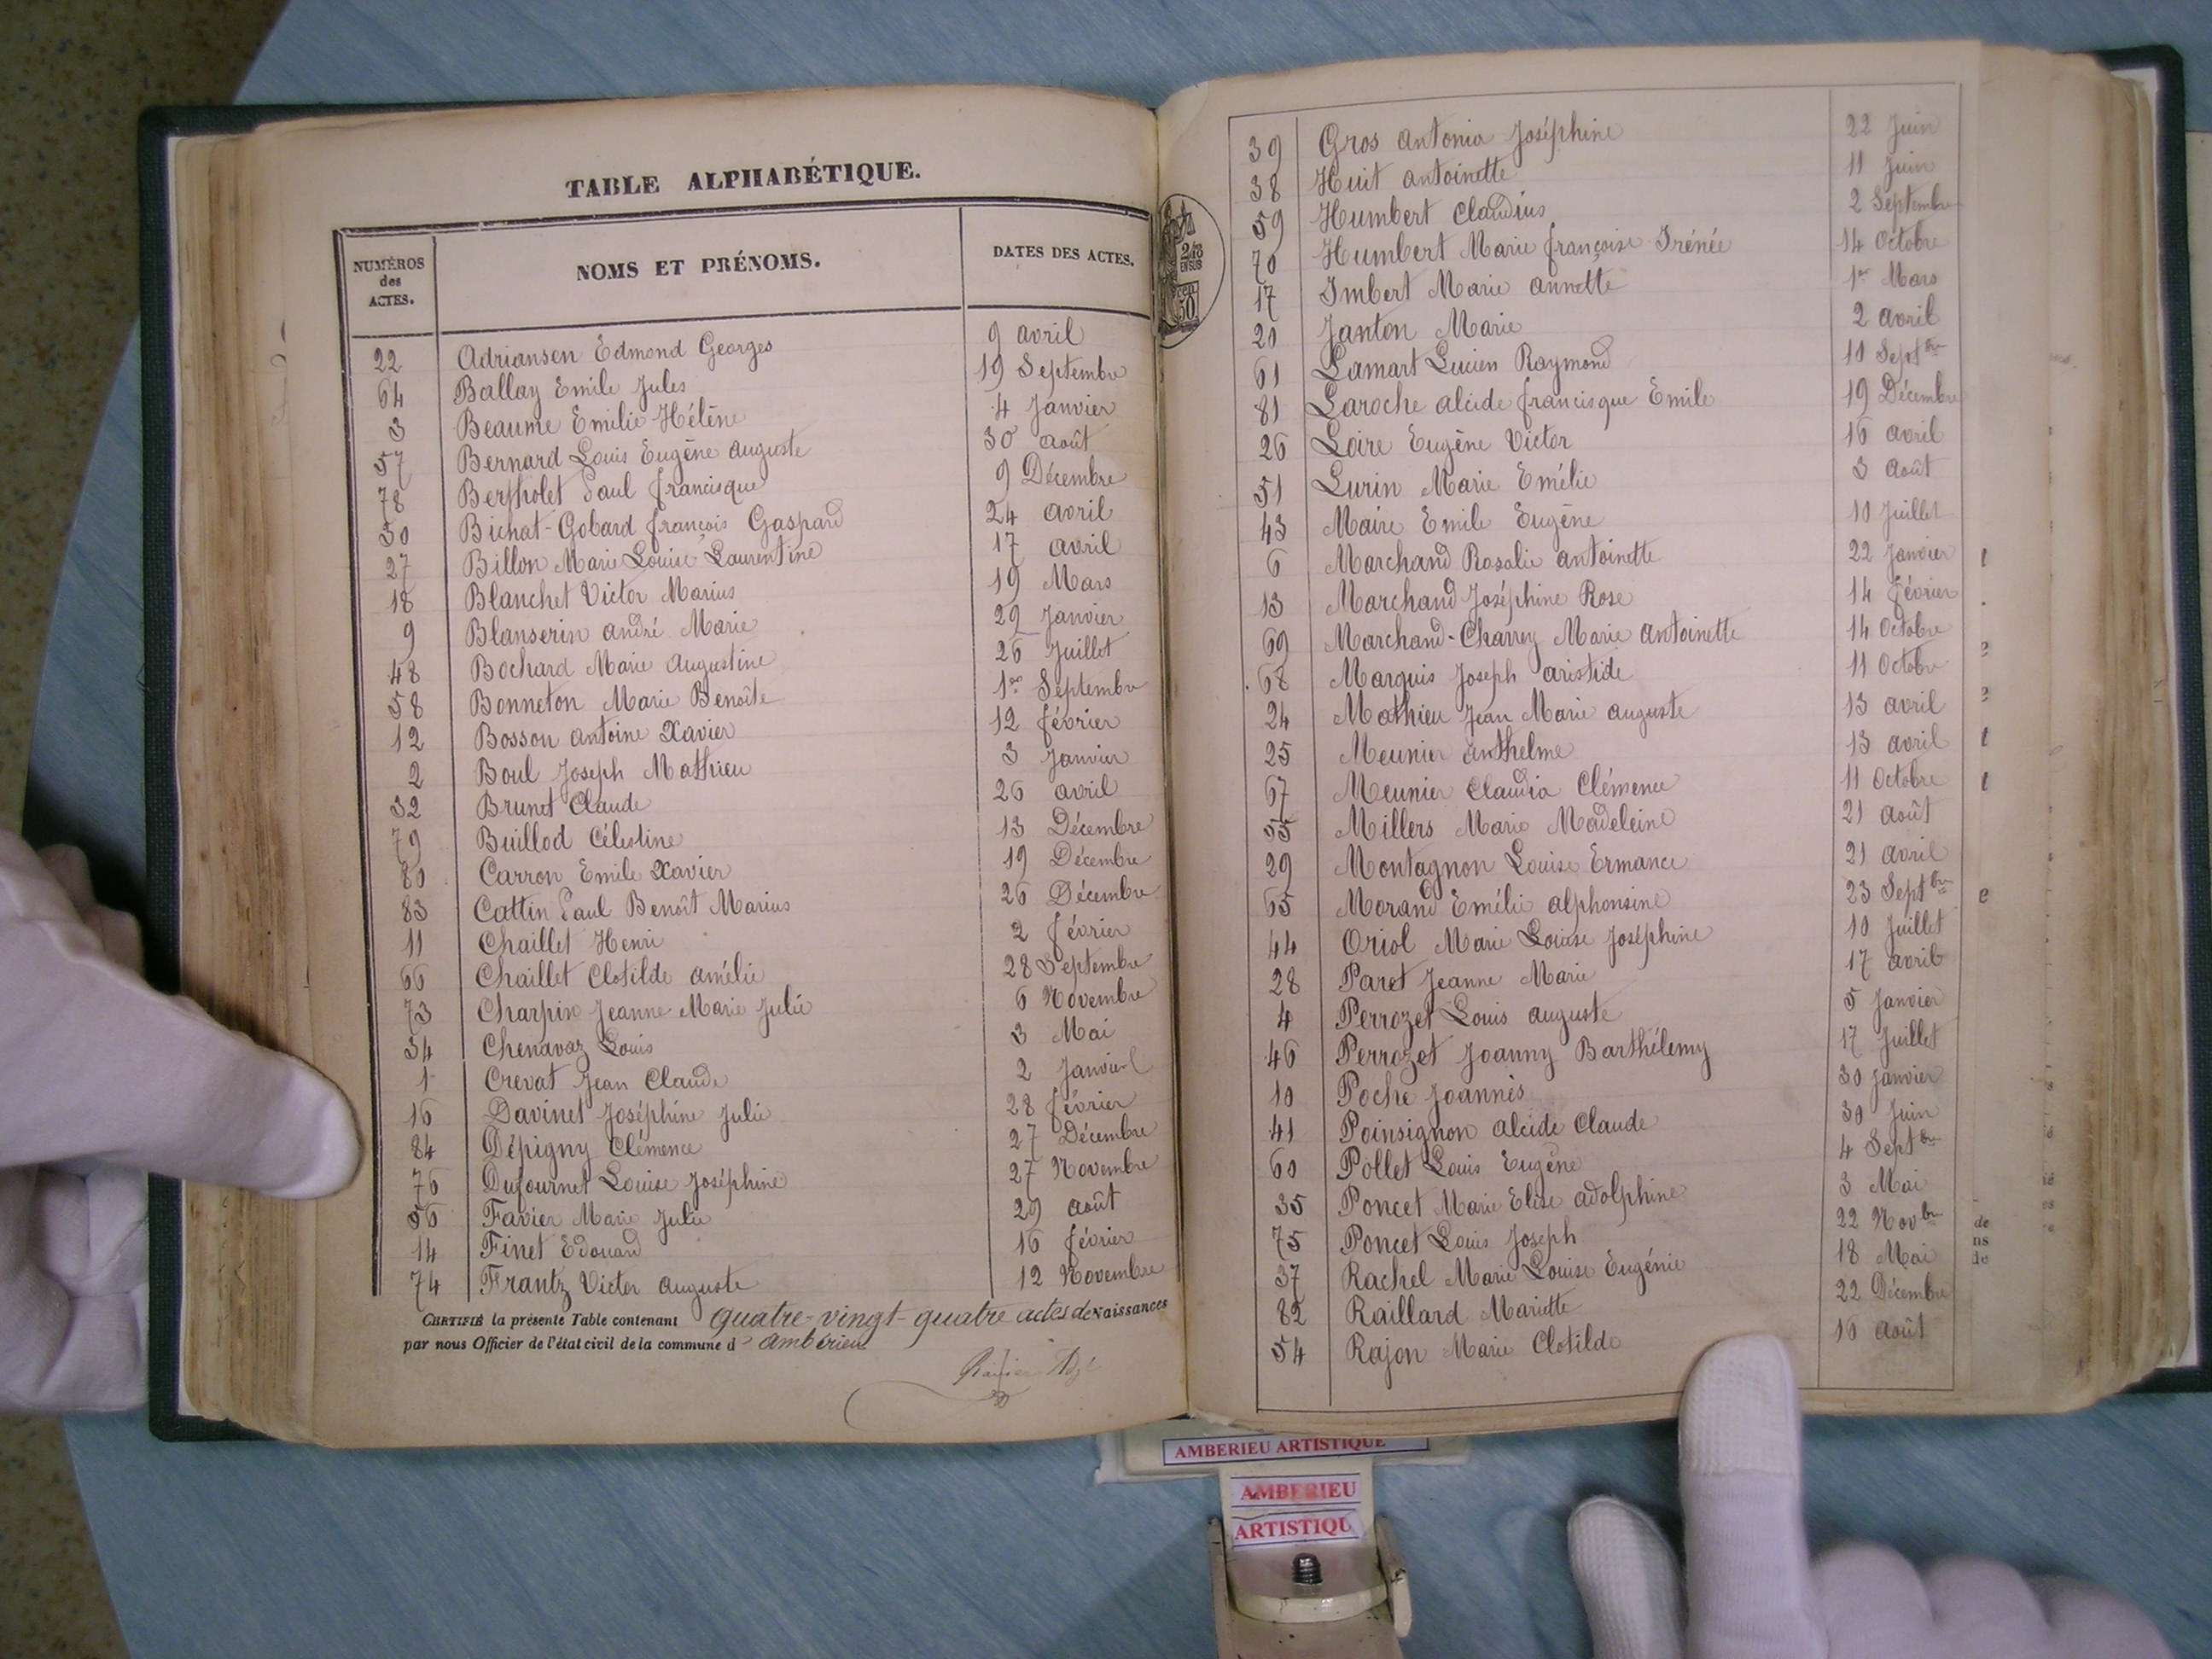 TABLE ALPHABÉTIQUE.
NUMÉROS des ACTES. NOMS ET PRÉNOMS. DATES DES ACTES.
22 Adriansen Edmond Georges 9 avril
64 Ballay Emile Jules 19 Septembre
3 Beaume Emilie Hélène 4 Janvier
57 Bernard Louis Eugène auguste 30 août
78 Bertholet Paul francisque 9 Décembre
30 Bichat-Gobard françois Gaspard 24 avril
27 Billon Marie Louise Laurentine 17 avril
18 Blanchet Victor Marius 19 Mars
9 Blanserin andré Marie 29 Janvier
48 Bochard Marie augustine 26 Juillet
58 Bonneton Marie Benoîte 1er Septembre
12 Bosson antoine Xavier 12 février
2 Boul Joseph Mathieu 3 Janvier
32 Brunet Claude 26 avril
79 Buillod Célestine 13 Décembre
80 Carron Emile Xavier 19 Décembre
83 Cattin Paul Benoît Marius 26 Décembre
11 Chaillet Henri 2 février
66 Chaillet Clotilde amélie 28 Septembre
73 Charpin Jeanne Marie Julie 6 Novembre
34 Chenavaz Louis 3 Mai
1 Crevat Jean Claude 2 Janvier
16 Davinet Joséphine Julie 28 février
84 Dépigny Clémence 27 Décembre
76 Dufournet Louise Joséphine 27 Novembre
56 Favier Marie Julie 29 août
14 Finet Edouard 16 février
74 Frantz Victor auguste 12 Novembre
CERTIFIÉ la présente Table contenant quatre-vingt-quatre actes de Naissances
par nous Officier de l'état civil de la commune d'ambérieu
2/10 EN SUS
50 cen
39 Gros antonia Joséphine 22 Juin
38 Huit antoinette 11 Juin
59 Humbert Claudius 2 Septembre
70 Humbert Marie françoise Irénée 14 Octobre
17 Imbert Marie annette 1er Mars
20 Janton Marie 2 avril
61 Lamart Lucien Raymond 10 Septbre
81 Laroche alcide francisque Emile 19 Décembre
26 Loire Eugène Victor 16 avril
51 Lurin Marie Emélie 3 août
43 Maire Emile Eugène 10 Juillet
6 Marchand Rosalie antoinette 22 Janvier
13 Marchand Joséphine Rose 14 février
69 Marchand-Charrey Marie antoinette 14 Octobre
68 Marquis Joseph aristide 11 Octobre
24 Mathieu Jean Marie auguste 13 avril
25 Meunier anthelme 13 avril
67 Meunier Claudia Clémence 11 Octobre
55 Millers Marie Madeleine 21 août
29 Montagnon Louise Ermance 21 avril
65 Morand Emélie alphonsine 23 Septbre
44 Oriol Marie Louise Joséphine 10 Juillet
28 Paret Jeanne Marie 17 avril
4 Perrozet Louis auguste 5 Janvier
46 Perrozet Joanny Barthélemy 17 Juillet
10 Poche Joannès 30 Janvier
41 Poinsignon alcide Claude 30 Juin
60 Pollet Louis Eugène 4 Septbre
35 Poncet Marie Elise adolphine 3 Mai
75 Poncet Louis Joseph 22 Novbre
37 Rachel Marie Louise Eugénie 18 Mai
82 Raillard Mariette 22 Décembre
54 Rajon Marie Clotilde 16 août
de
ns
de
AMBERIEU ARTISTIQUE
AMBERIEU
ARTISTIQU